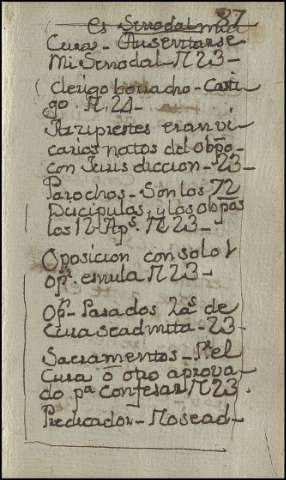 87
es Synodal mia
Curas - Ausentarse
mi Synodal - N 23 -
clerigo borracho - Casti
go. N. 24 -
Arziprestes eran vi
carios natos del obpō -
con Jurisdiccion - 23 -
Parochos - Son los 72
Discipulos, y los obpōs
los 12 Aps. N 23 -
Oposicion con solo 1
opr. es nula N 23 -
Opr - Pasados 2 as. de
Cura se admita - 23 -
Sacramentos - Pr el
Cura ō otro aprova
do pa confesar N 23.
Predicador - No se ad -